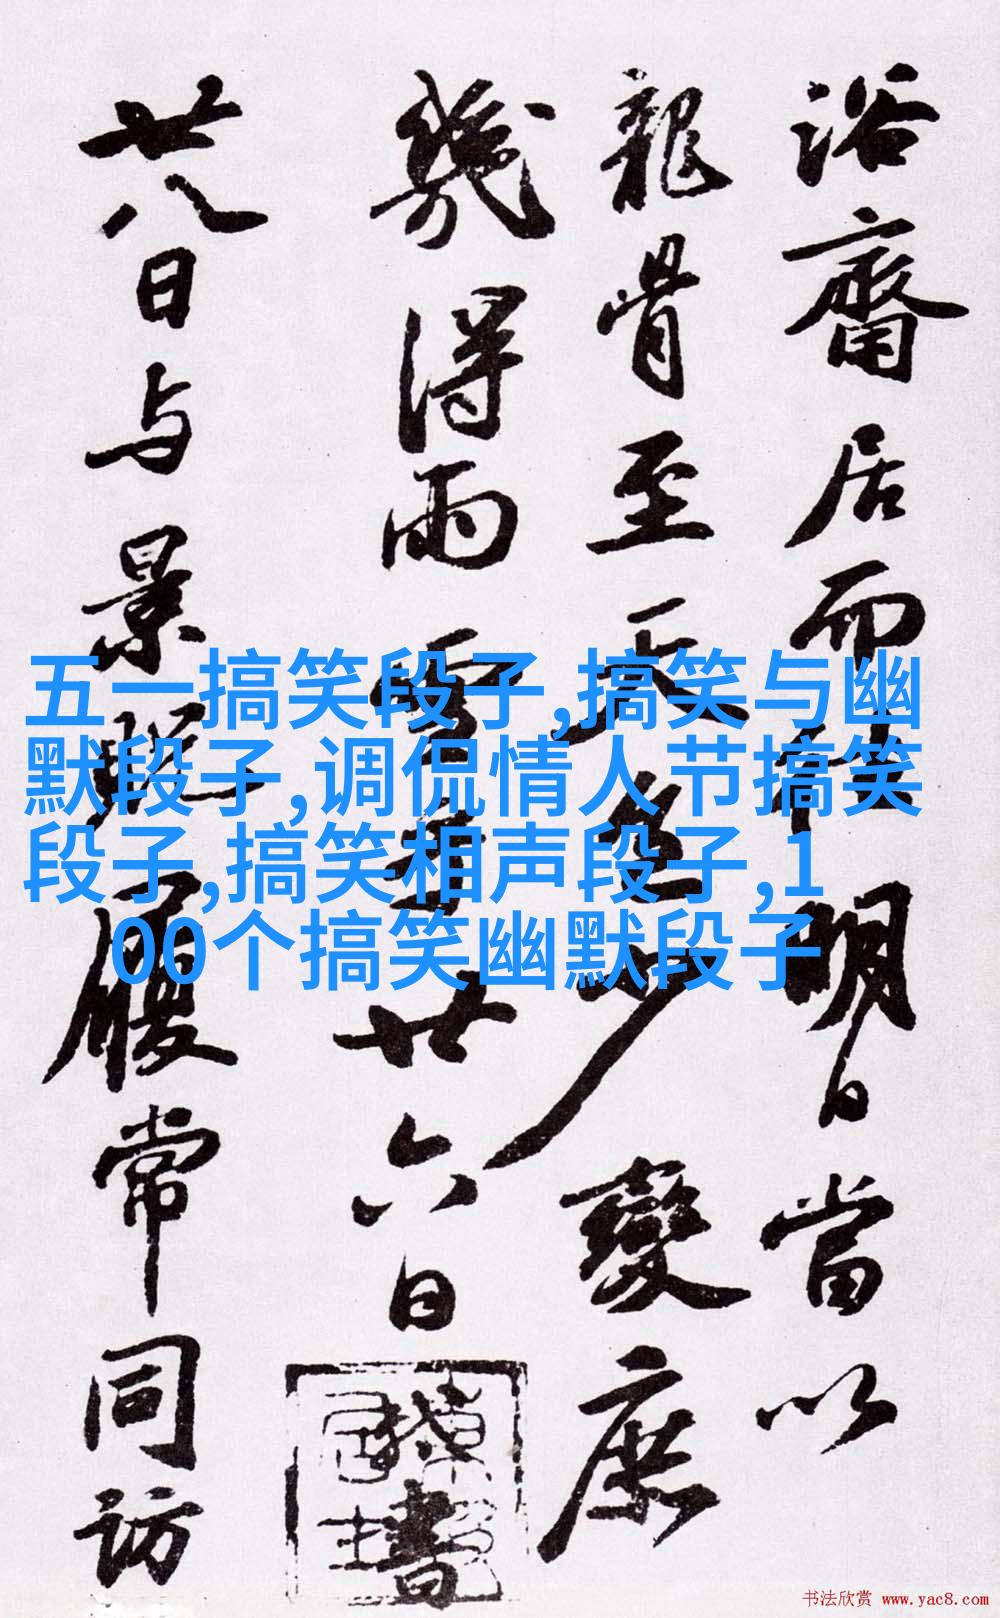 浴齋居而明日當以
龍骨至天必少變庶
幾得雨雪耳廿六日書
廿八日与景貺履常同訪
五一搞笑段子,搞笑与幽
默段子,调侃情人节搞笑
段子,搞笑相声段子,1
00个搞笑幽默段子
书法欣赏 www.yac8.com